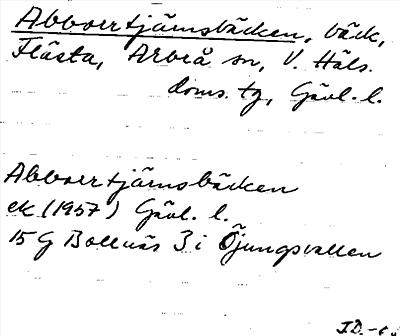 Abborrtjärnsbäcken, bäck,
Flästa, Arbrå sn, V. Häls.
doms. tg, Gävl. l.
Abborrtjärnsbäcken
ek (1957) Gävl. l.
15 G Bollnäs 3 i Öjungsvallen